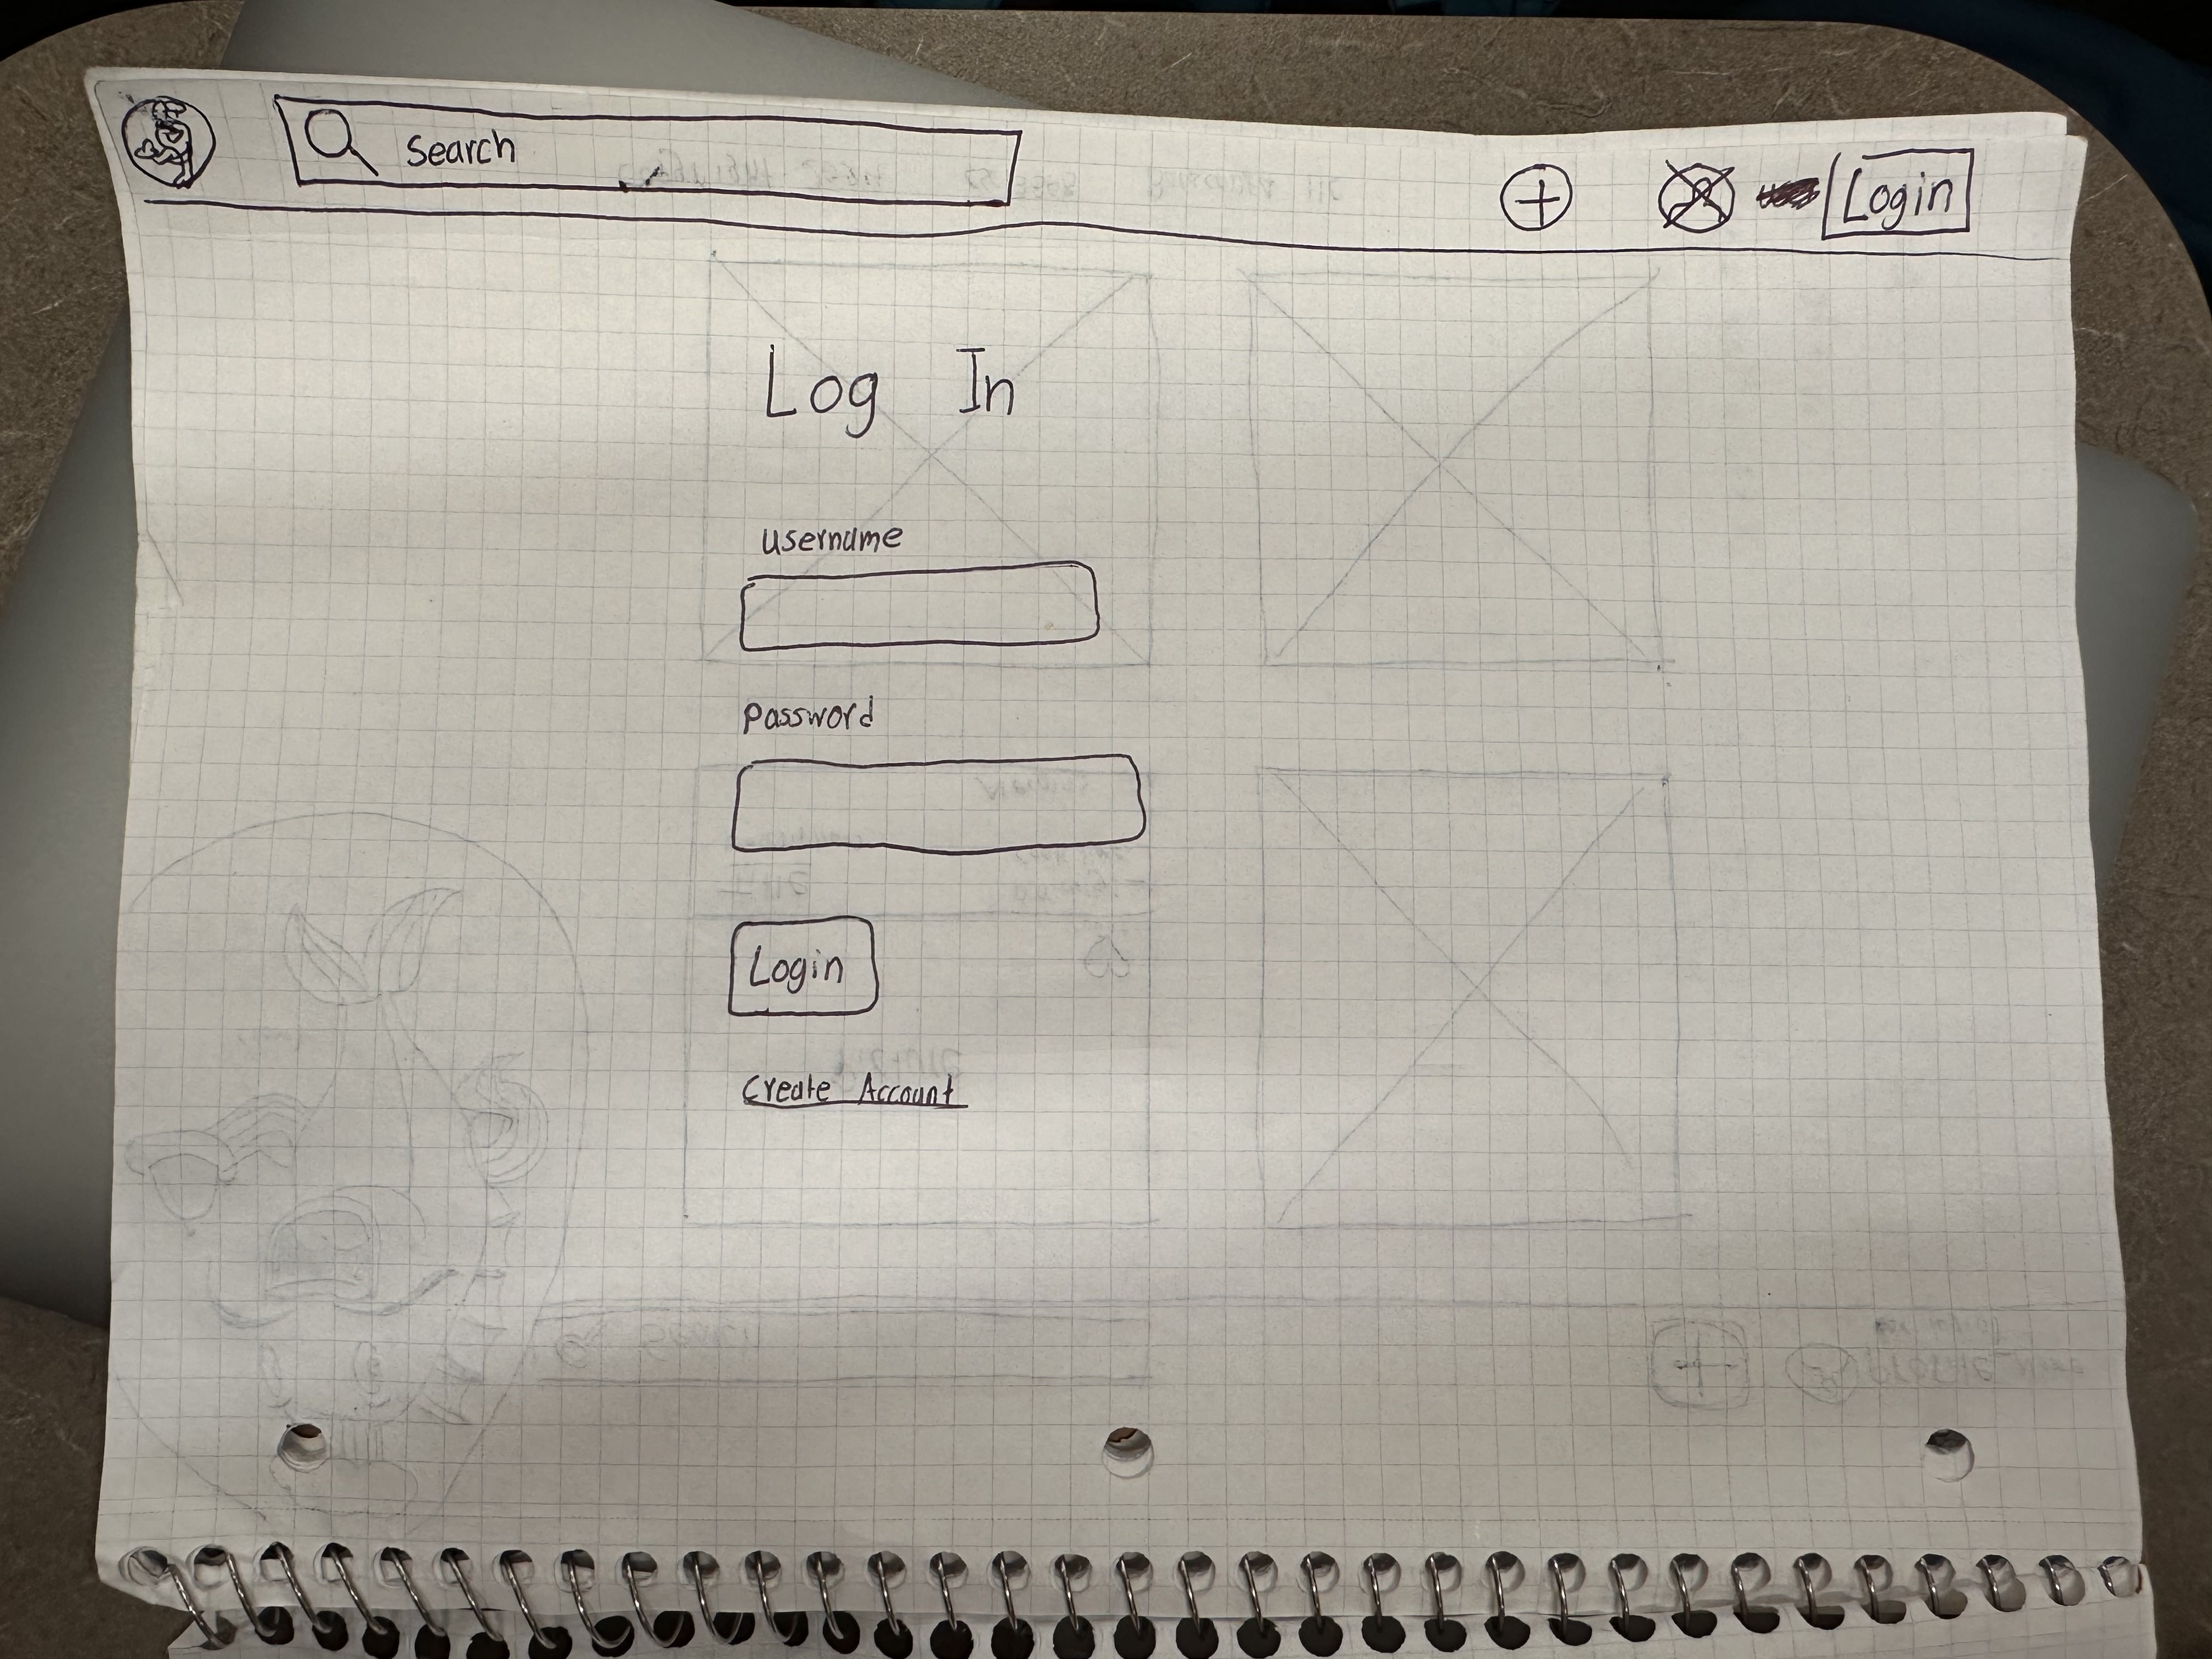 Search
Login
Log In
username
password
Login
Create Account